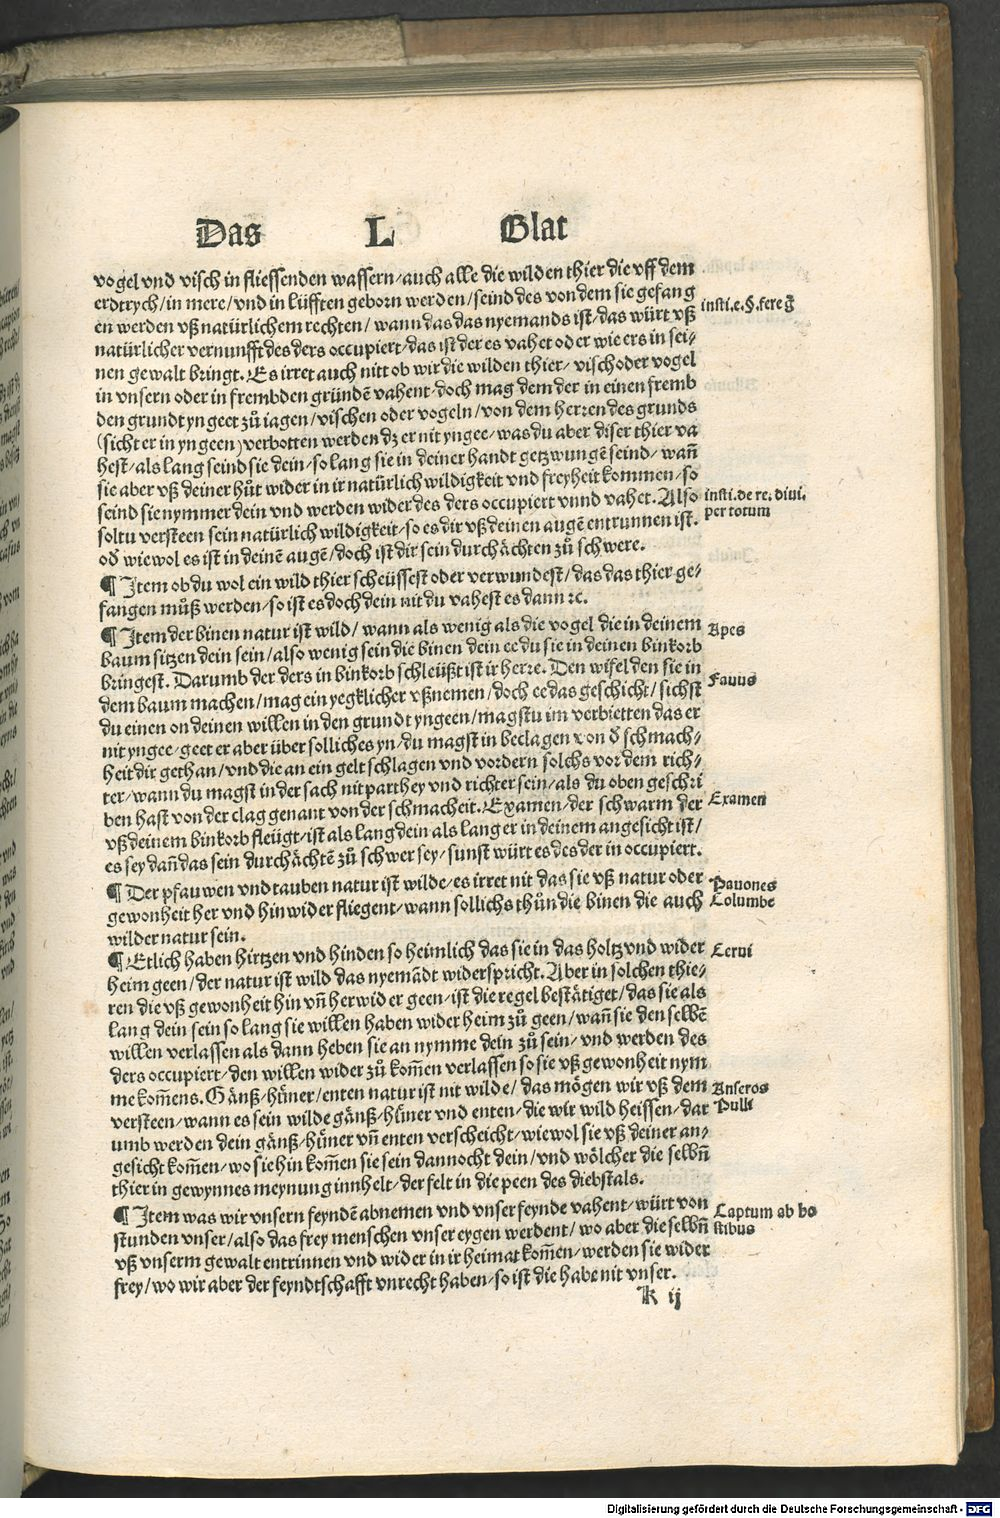 Das L Blat
vogel vnd visch in fliessenden wassern/auch alle die wilden thier die vff dem
erdtrych/in mere/vnd in lüfften geborn werden/seind des von dem sie gefang
en werden vß natürlichem rechten/wann das das nyemands ist/das würt vß
insti.e.§.fere
natürlicher vernunfft des ders occupiert/das ist der es vahet oder wie ers in sei-
nen gewalt bringt. Es irret auch nitt ob wir die wilden thier/visch oder vogel
in vnsern oder in frembden gründē vahent/doch mag dem der in einen fremb
den grundt yngeet zů iagen/vischen oder vogeln/von dem herren des grunds
(sicht er in yngeen) verbotten werden dz er nit yngee/was du aber diser thier va
hest/als lang seind sie dein/so lang sie in deiner handt getzwungē seind/wañ
sie aber vß deiner hůt wider in ir natürlich wildigkeit vnd freyheit kommen/so
seind sie nymmer dein vnd werden wider des ders occupiert vnnd vahet. Also
insti.de re.diui.
per totum
soltu versteen sein natürlich wildigkeit/so es dir vß deinen augē entrunnen ist.
od̄ wiewol es ist in deinē augē/doch ist dir sein durchächten zů schwere.
¶ Item ob du wol ein wild thier scheüssest oder verwundest/das das thier ge-
fangen můß werden/so ist es doch dein nit du vahest es dann ꝛc.
¶ Item der binen natur ist wild/wann als wenig als die vogel die in deinem
Apes
baum sitzen dein sein/also wenig sein die binen dein ee du sie in deinen binkorb
bringest. Darumb der ders in binkorb schleüßt ist ir herre. Den wifel den sie in
Fauus
dem baum machen/mag ein yegklicher vßnemen/doch ee das geschicht/sichst
du einen on deinen willen in den grundt yngeen/magstu im verbietten das er
nit yngee/geet er aber über solliches yn/du magst in beclagen von d̄ schmach-
heit dir gethan/vnd die an ein gelt schlagen vnd vordern solchs vor dem rich-
ter/wann du magst in der sach nit parthey vnd richter sein/als du oben geschri
ben hast von der clag genant von der schmacheit. Examen/der schwarm der
Examen
vß deinem binkorb fleügt/ist als lang dein als lang er in deinem angesicht ist/
es sey dañ das sein durchächtē zů schwer sey/sunst würt es des der in occupiert.
¶ Der pfauwen vnd tauben natur ist wilde/es irret nit das sie vß natur oder
Pauones
Columbe
gewonheit her vnd hin wider fliegent/wann sollichs thůn die binen die auch
wilder natur sein.
¶ Etlich haben hirtzen vnd hinden so heimlich das sie in das holtz vnd wider
Cerui
heim geen/der natur ist wild das nyemādt widerspricht. Aber in solchen thie-
ren die vß gewonheit hin vñ herwider geen/ist die regel bestätiget/das sie als
lang dein sein so lang sie willen haben wider heim zů geen/wañ sie den selbē
willen verlassen als dann heben sie an nymme dein zů sein/vnd werden des
ders occupiert/den willen wider zů kom̄en verlassen so sie vß gewonheit nym
me kom̄ens. Gänß/hůner/enten natur ist nit wilde/das mögen wir vß dem
Anseres
Pulli
versteen/wann es sein wilde gänß/hůner vnd enten/die wir wild heissen/dar
umb werden dein gänß/hůner vñ enten verscheicht/wiewol sie vß deiner an-
gesicht kom̄en/wo sie hin kom̄en sie sein dannocht dein/vnd wölcher die selbñ
thier in gewynnes meynung innhelt/der felt in die peen des diebstals.
¶ Item was wir vnsern feyndē abnemen vnd vnser feynde vahent/würt von
Captum ab ho
stibus
stunden vnser/also das frey menschen vnser eygen werdent/wo aber die selbñ
vß vnserm gewalt entrinnen vnd wider in ir heimat kom̄en/werden sie wider
frey/wo wir aber der feyndtschafft vnrecht haben/so ist die habe nit vnser.
k ij
Digitalisierung gefördert durch die Deutsche Forschungsgemeinschaft - DFG